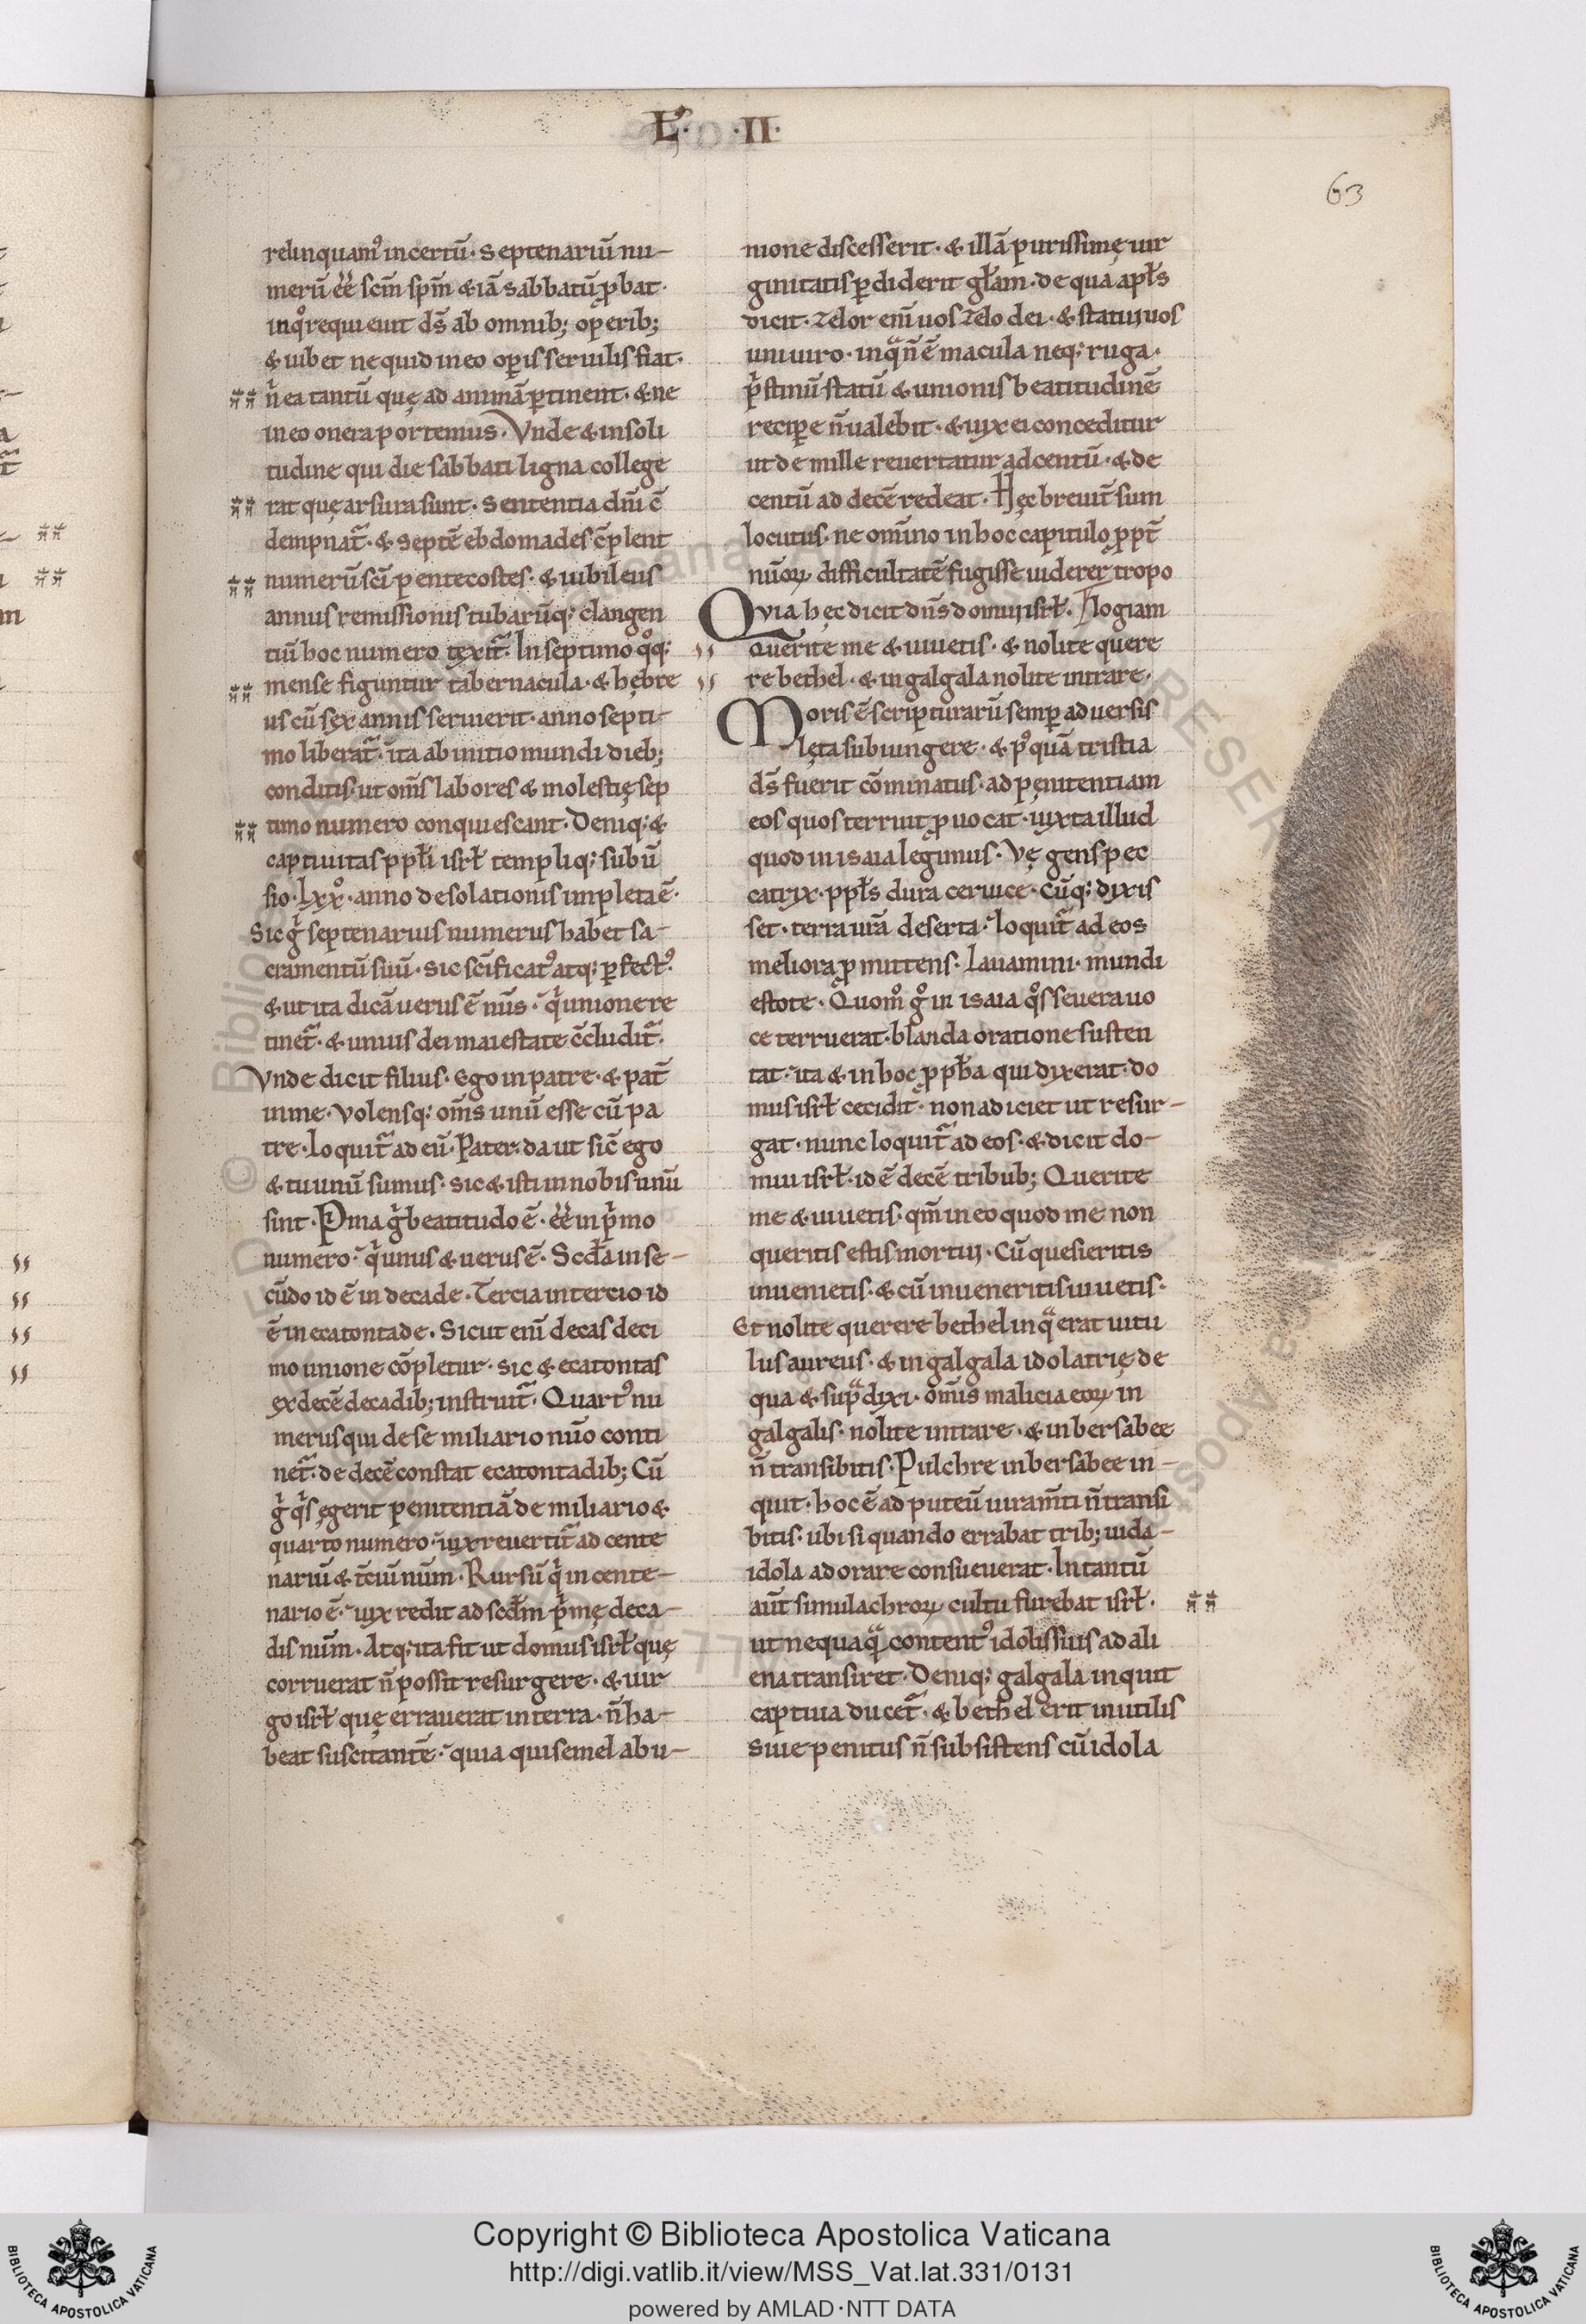 L· ·II·
63
relinquam᷒ incertū· Septenariū nu-
merū ee͂ scm̄ spm̄ & iā sabbatū ꝓbat·
inqͦ requieuit ds̄ ab omnib; oꝑib;
& iubet ne quid in eo oꝑis seruilis fiat·
nͥ ea tantū quę ad animā ꝑtinent· & ne
in eo onera portemus· Vnde & in soli
tudine qui die sabbati ligna college
rat quę arsura sunt· Sententia dn̄i ē
dempnat᷑· & septē ebdomades cp̄lent
numerū sci pentecostes· & iubileus
annus remissionis tubarūq; clangen
tiū hoc numero texit᷑· In septimo qͦq;
mense figuntur tabernacula· & hębre
us cū sex annis seruierit· anno septi-
mo liberat᷑· ita ab initio mundi dieb;
conditis· ut oms̄ labores & molestię sep
timo numero conquiescant· Deniq; &
captiuitas ppłi isrł templiq; subū
sio· lxxͦ· anno desolationis impleta ē·
Sic gͥ septenarius numerus habet sa-
cramentū suū· sic scīficat᷒ atq; ꝑfect᷒·
& ut ita dicā uerus ē nūs· qͥ unione re
tinet᷑· & unius dei maiestate cc̄ludit᷑·
Vnde dicit filius· Ego in patre· & pat̄
in me· Volensq; oms̄ unū esse cū pa
tre· loquit᷑ ad eū· Pater· da ut sic̄ ego
& tu unū sumus· sic & isti in nobis unū
sint· Pͥma gͥ beatitudo ē· ee͂ in pͥmo
numero· qͥ unus & uerus ē· Scd̄a in se-
cūdo id ē in decade· Tercia in tercio id
ē in ecatontade· Sicut enī decas deci
mo unione cōpletur· sic & ecatontas
ex decē decadib; instruit᷑· Quart᷒ nu
merus qui de se miliario nūo conti
net᷑· de decē constat ecatontadib; Cū
gͥ qͥs egerit penitentiā de miliario &
quarto numero· uix reuertit᷑ ad cente
nariū & tc̄iū nūm· Rursū qͥ in cente-
nario ē· uix redit ad scd̄m pͥmę deca-
dis nūm· Atq; ita fit ut domus isrł quę
corruerat n̄ possit resurgere· & uir
go isrł quę errauerat in terra· n̄ ha-
beat suscitantē· quia qui semel ab u-
nione discesserit· & illā purissimę uir
ginitatis ꝑdiderit głam· de qua apłs
dicit· Zelor enī uos zelo dei· & statui uos
uni uiro· in qͣ n̄ ē macula neq; ruga·
pͥstinū statū & unionis beatitudinē
reciꝑe n̄ ualebit· & uix ei conceditur
ut de mille reuertatur ad centū· & de
centū ad decē redeat· Hęc breuit̄ sum
locutus· ne omīno in hoc capitulo ꝓpt̄
nūoꝝ difficultatē fugisse uiderer tropo
Qvia hęc dicit dn̄s domui isrł· logiam
Querite me & uiuetis· & nolite quere
re bethel· & in galgala nolite intrare·
Moris ē scripturarū semꝑ aduersis
lęta subiungere· & pͦquā tristia
ds̄ fuerit cōminatus· ad pęnitentiam
eos quos terruit ꝓuocat· iuxta illud
quod in isaia legimus· Vę gens pec
catrix· ppłs dura ceruice· cūq; dixis
set· terra ura̅ deserta· loquit᷑ ad eos
meliora ꝓmittens· Lauamini· mundi
estote· Quomͦ gͦ in isaia qͦs seuera uo
ce terruerat· blanda oratione susten
tat· ita & in hoc ꝓpħa qui dixerat· do
mus isrł cecidit· non adiciet ut resur-
gat· nunc loquit᷑ ad eos· & dicit do-
mui isrł· id ē decē tribub; Querite
me & uiuetis· qm̄ in eo quod me non
queritis estis mortui· Cū quesieritis
inuenietis· & cū inueneritis uiuetis·
Et nolite querere bethel in qͣ erat uitu
lus aureus· & in galgala idolatrię de
qua & supͣ dixi· Omīs malicia eoꝝ in
galgalis· nolite intrare· & in bersabee
n̄ transibitis· Pulchre in bersabee in-
quit· hoc ē ad puteū iuram̄ti n̄ transi
bitis· ubi si quando errabat trib; iuda-
idola adorare consueuerat· In tantū
aūt simulachroꝝ cultu furebat isrł·
ut nequaqͣ content᷒ idolis suis ad ali
ena transiret· Deniq; galgala inquit
captiua ducet᷑· & bethel erit inutilis
siue penitus n̄ subsistens cū idola
Copyright © Biblioteca Apostolica Vaticana
http://digi.vatlib.it/view/MSS_Vat.lat.331/0131
powered by AMLAD·NTT DATA
BIBLIOTECA APOSTOLICA VATICANA
BIBLIOTECA APOSTOLICA VATICANA